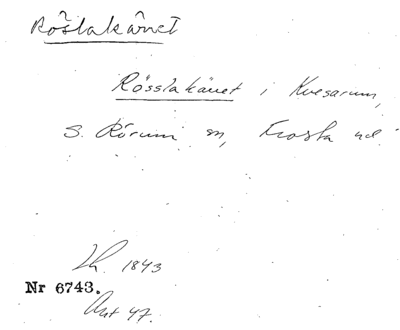 Röstakänet
Rösstakänet i Kvesarum,
S. Rörum sn, Frosta hd.
Lh. 1843
Nr 6743.
Akt 47.